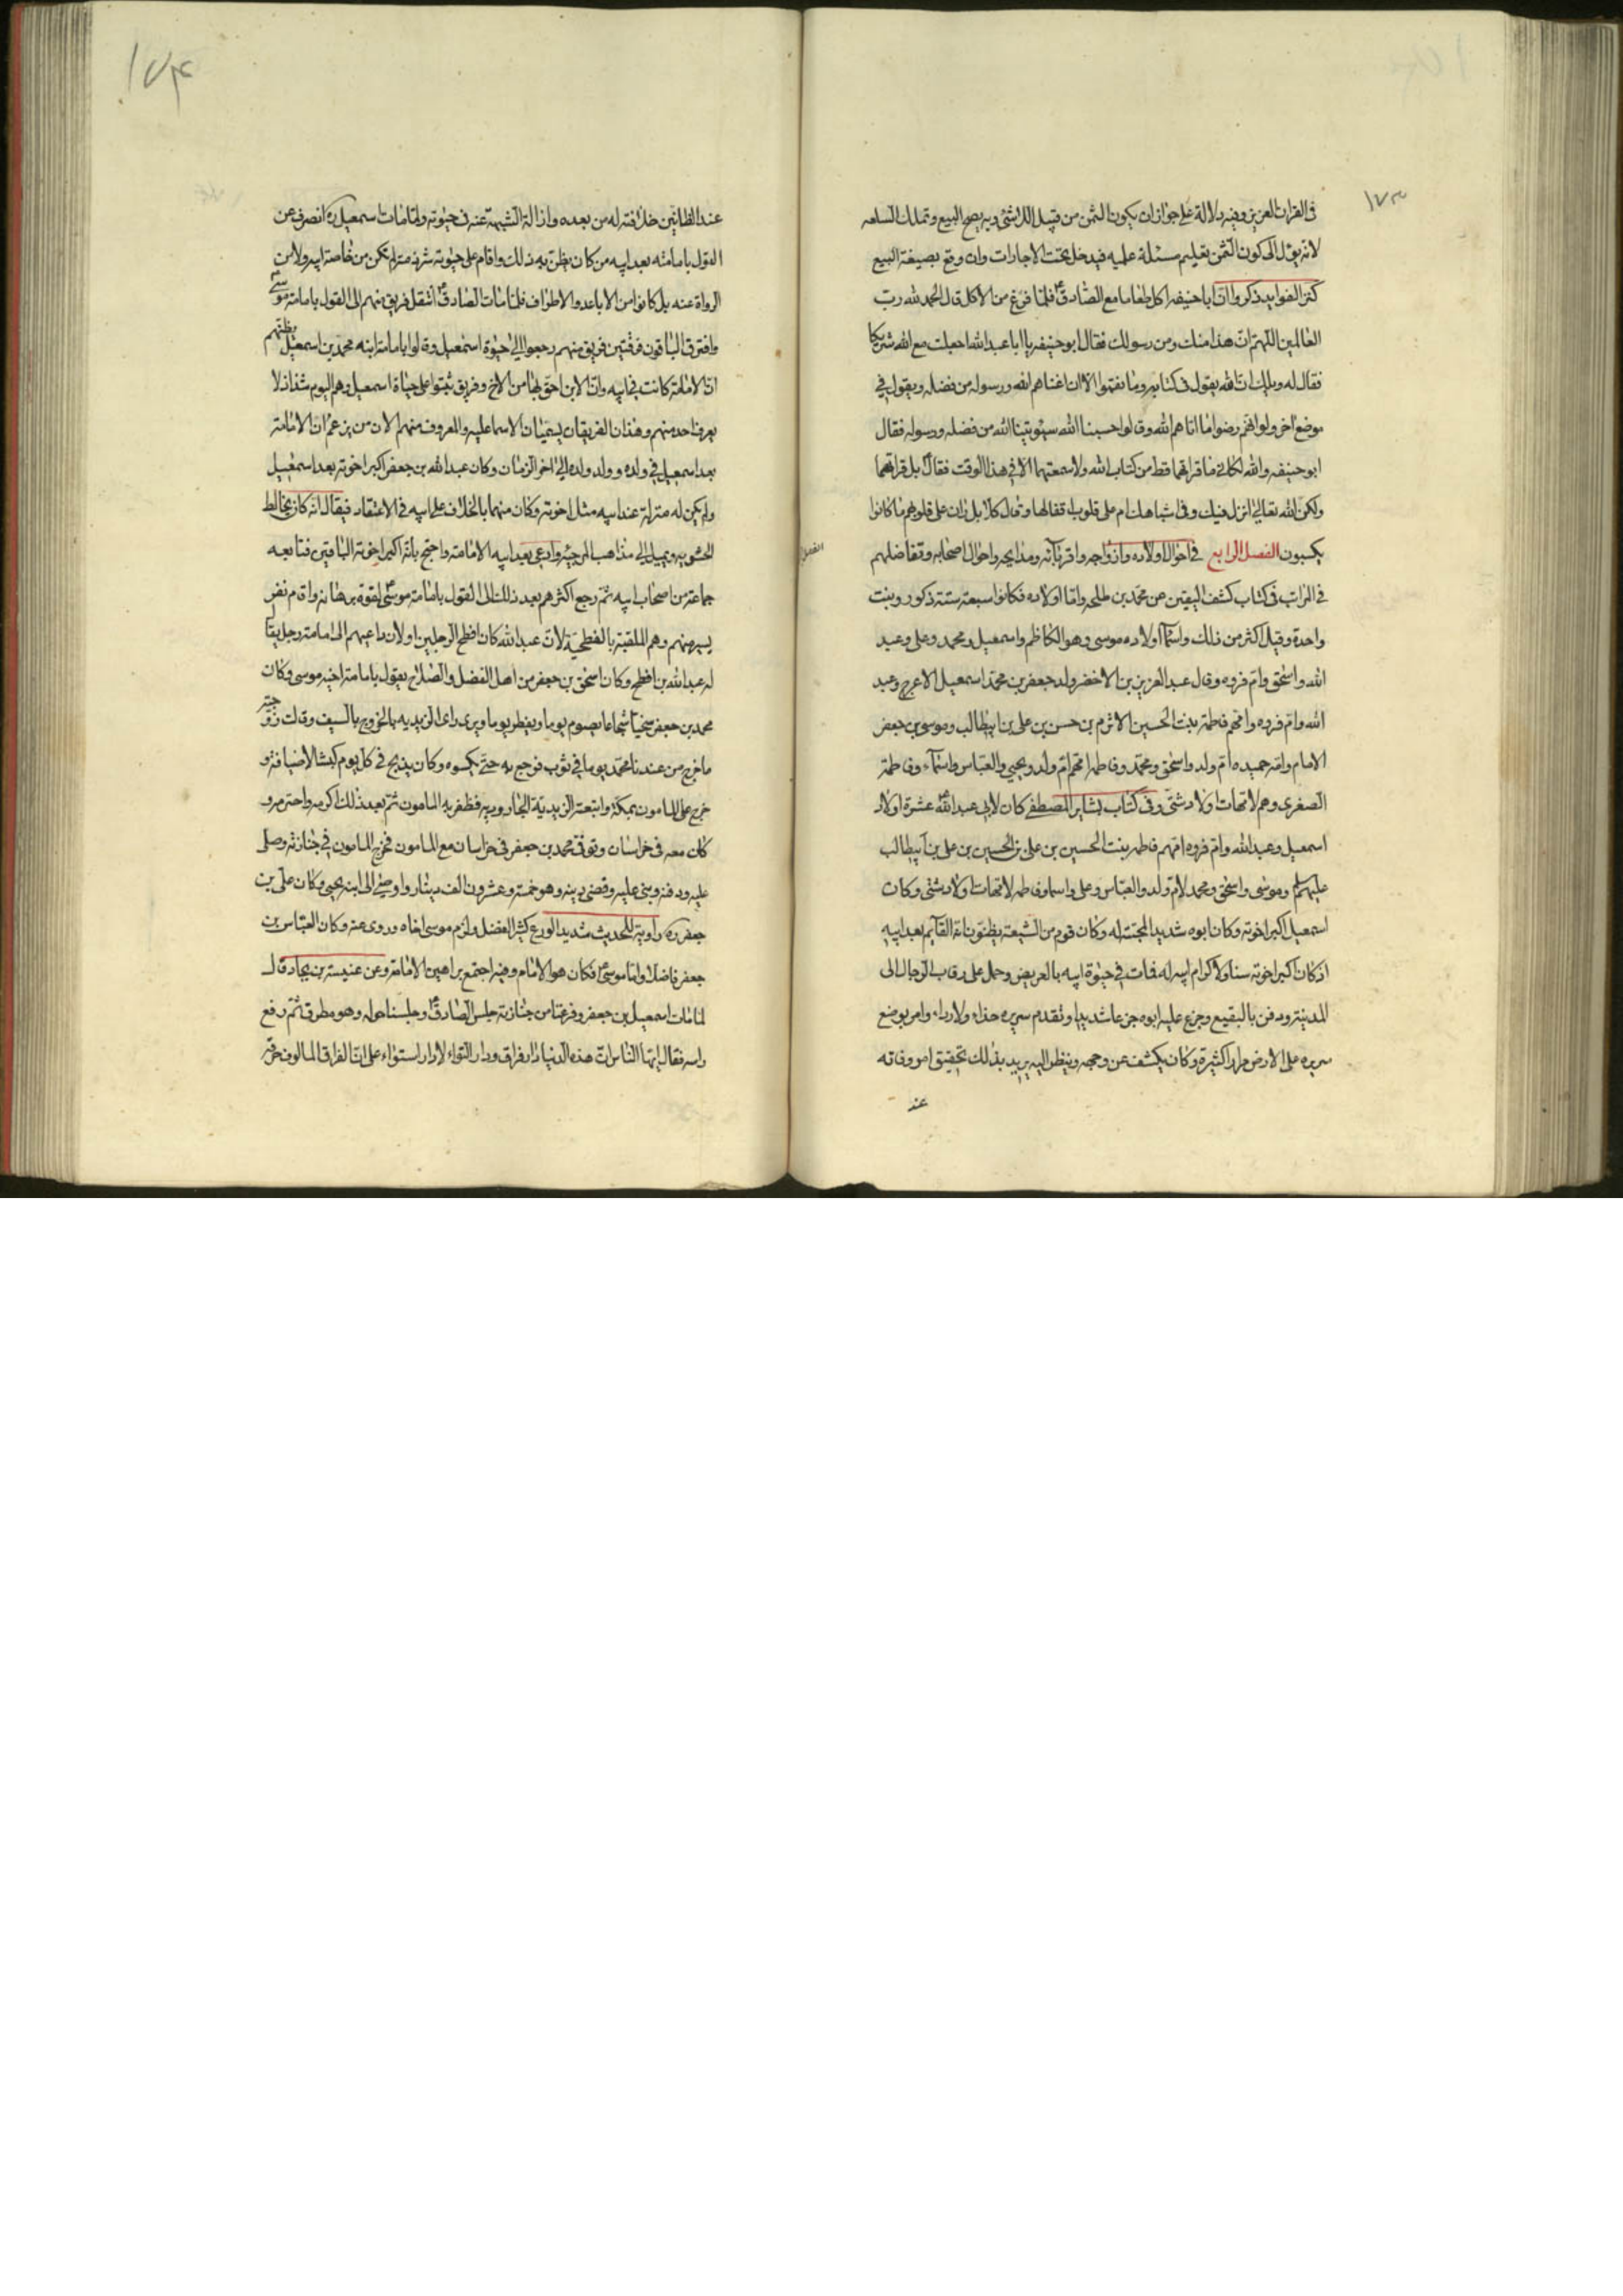 ١٧٣
فى القران العزيز وفيه دلالة على جواز ان يكون الثمن من قبيل اللاشئ وبه يصح البيع وتملك السلعه
لانه يؤل الى كون الثمن تعليم مسئلة عليه فيدخل تحت الاجارات وان وقع بصيغة البيع
كنز الفوايد ذكروا ان ابا حنيفه اكل طعاما مع الصادق ع فلما فرغ من الاكل قال الحمد لله رب
العالمين اللهم ان هذا منك ومن رسولك فقال ابو حنيفه يا ابا عبد الله اجعلت مع الله شريكا
فقال له ويلك ان الله يقول فى كتابه وما نقموا الا ان اغناهم الله ورسوله من فضله ويقول فى
موضع اخر ولو انهم رضوا ما اتاهم الله وقالوا حسبنا الله سيؤتينا الله من فضله ورسوله فقال
ابو حنيفه والله لكانى ما قراتهما قط من كتاب الله ولا سمعتهما الا فى هذا الوقت فقال ع بل قراتهما
ولكن الله تعالى انزل فيك وفى اشباهك ام على قلوب اقفالها وقال كلا بل ران على قلوبهم ما كانوا
يكسبون الفصل الرابع فى احوال اولاده وازواجه واقربائه ومدايحه واحوال اصحابه وتفاضلهم
فى المراتب فى كتاب كشف اليقين عن محمد بن طلحه واما اولاده فكانوا سبعة ستة ذكور وبنت
واحدة وقيل اكثر من ذلك واسمآ اولاده موسى وهو الكاظم واسمعيل ومحمد وعلى وعبد
الله واسحق وام فروه وقال عبد العزيز بن الاخضر ولد جعفر بن محمد اسمعيل الاعرج وعبد
الله وام فروه وامهم فاطمة بنت الحسين الاثرم بن حسن بن على بن ابيطالب وموسى بن جعفر
الامام وامه حميده ام ولد واسحق ومحمد وفاطمه امهم ام ولد ويحيى والعباس واسمآء وفاطمة
الصغرى وهم لامهات اولاد شتى وفى كتاب بشاير المصطفى كان لابى عبد الله ع عشرة اولاد
اسمعيل وعبد الله وام فروه امهم فاطمه بنت الحسين بن على بن الحسين بن على بن ابيطالب
عليهم سلم وموسى واسحق ومحمد لام ولد والعباس وعلى واسما وفاطمه لامهات اولاد شتى وكان
اسمعيل اكبر اخوته وكان ابوه شديد المحبته له وكان قوم من الشيعة يظنون انه القآيم بعد ابيه
اذ كان اكبر اخوته سنا ولاكرام ابيه له فمات فى حيوة ابيه بالعريض وحمل على رقاب الرجال الى
المدينة ودفن بالبقيع وجزع عليه ابوه جزعا شديدا وتقدم سريره حذاء ولا رداء وامر بوضع
سريره على الارض مرارا كثيرة وكان يكشف عن وجهه وينظر اليه يريد بذلك تحقيق امر وفاته
عند
١٧٤
عند الظانين خلافته له من بعده وازالة الشبهة عنه فى حيوته ولما مات اسمعيل ره انصرف عن
القول بامامته بعد ابيه من كان يظن به ذلك واقام على حيوته شرذمة لم تكن من خاصة ابيه ولا من
الرواة عنه بل كانوا من الاباعد والاطراف فلما مات الصادق ع انتقل فريق منهم الى القول بامامة موسى ع
وافترق الباقون فرقتين فريق منهم رجعوا الى حيوة اسمعيل وقالوا بامامة ابنه محمد بن اسمعيل بظنهم
ان الامامة كانت فى ابيه وان الابن احق بها من الاخ وفريق ثبتوا على حياة اسمعيل وهم اليوم شذاذ لا
يعرف احد منهم وهذان الفريقان يسميان الاسماعليه والمعروف منهم الان من يزعم ان الامامة
بعد اسمعيل فى ولده وولد ولده الى اخر الزمان وكان عبد الله بن جعفر اكبر اخوته بعد اسمعيل
ولم يكن له منزلة عند ابيه مثل اخوته وكان متهما بالخلاف على ابيه فى الاعتقاد فيقال انه كان يخالط
الحشويه ويميل الى مذاهب المرجئه وادعى بعد ابيه الامامة واحتج بانه اكبر اخوته الباقين فتابعه
جماعة من اصحاب ابيه ثم رجع اكثرهم بعد ذلك الى القول بامامة موسى ع لقوة برهانه واقام نفر
يسير منهم وهم الملقبة بالفطحية لان عبد الله كان افطح الرجلين او لان داعيهم الى امامته رجل يقال
له عبد الله بن افطح وكان اسحق بن جعفر من اهل الفضل والصلاح يقول بامامة اخيه موسى وكان
محمد بن جعفر سخيا شجاعا يصوم يوما ويفطر يوما ويرى راى الزيديه بالخروج بالسيف وقالت زوجته
ما خرج من عندنا محمد يوما فى ثوب فرجع به حتى يكسوه وكان يذبح فى كل يوم كبشا لاضيافه و
خرج على المامون بمكة واتبعته الزيدية الجاروديه فظفر به المامون ثم بعد ذلك اكرمه واحترمه و
كان معه فى خراسان وتوفى محمد بن جعفر فى خراسان مع المامون فخرج المامون فى جنازته وصلى
عليه ودفنه وبنى عليه وقضى دينه وهو خمسة وعشرون الف دينار واوصى الى ابنه يحيى وكان على بن
جعفر ره راوية للحديث شديد الورع كثير الفضل ولزم موسى اخاه وروى عنه وكان العباس بن
جعفر فاضلا واما موسى ع فكان هو الامام وفيه اجتمع براهين الامامة وعن عنبسة بن بجاد قال
لما مات اسمعيل بن جعفر وفرغنا من جنازته جلس الصادق ع وجلسنا حوله وهو مطرق ثم رفع
راسه فقال ايها الناس ان هذه الدنيا دار فراق ودار التواء لا دار استواء على ان الفراق المالوف حرقة